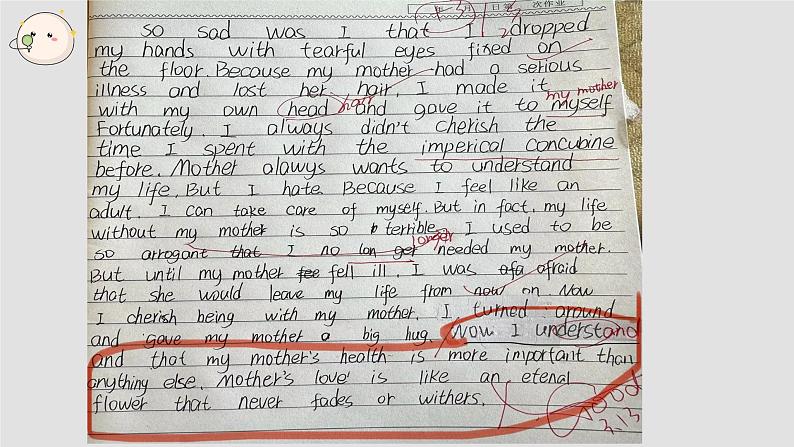 年 月 日 第 次作业
So sad was I that I dropped
my hands with tearful eyes fixed on
the floor. Because my mother had a serious
illness and lost her hair, I made it
my mother
with my own head and gave it to myself
hair
Fortunately. I always didn't cherish the
time I spent with the imperical concubine
before. Mother alawys wants to understand
my life. But I hate. Because I feel like an
adult. I can take care of myself. But in fact, my life
without my mother is so terrible. I used to be
longer
so arrogant that I no lon ger needed my mother.
But until my mother fee fell ill. I was afa afraid
that she would leave my life from now on. Now
I cherish being with my mother. I turned around
and gave my mother a big hug. Now I understand
and that my mother's health is more important than
anything else. Mother's love is like an etenal
flower that never fades or withers.
Good
3.13